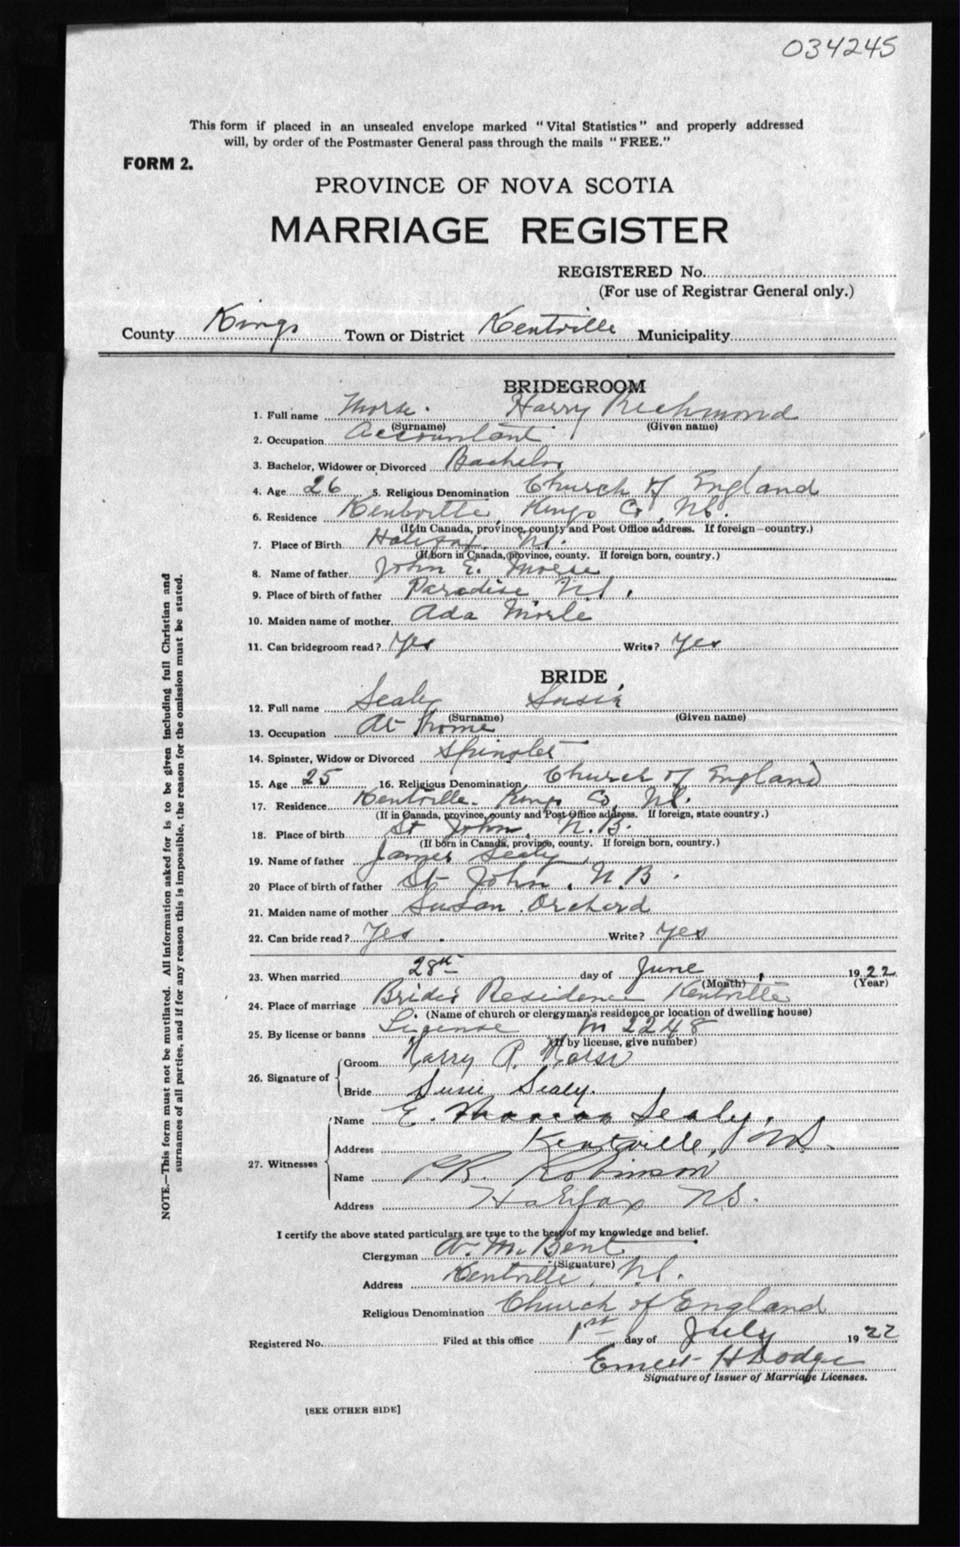 034245
This form if placed in an unsealed envelope marked "Vital Statistics" and properly addressed
will, by order of the Postmaster General pass through the mails "FREE."
FORM 2.
PROVINCE OF NOVA SCOTIA
MARRIAGE REGISTER
REGISTERED No.
(For use of Registrar General only.)
County Kings Town or District Kentville Municipality
BRIDEGROOM
1. Full name Morse. Harry Richmond
(Surname) (Given name)
2. Occupation Accountant
3. Bachelor, Widower or Divorced Bachelor
4. Age 26 5. Religious Denomination Church of England
6. Residence Kentville, Kings Co, NS.
(If in Canada, province, county and Post Office address. If foreign—country.)
7. Place of Birth Halifax, NS.
(If born in Canada, province, county. If foreign born, country.)
8. Name of father John E. Morse
9. Place of birth of father Paradise, NS.
10. Maiden name of mother Ada Morse
11. Can bridegroom read? Yes Write? Yes
BRIDE
12. Full name Sealy Susie
(Surname) (Given name)
13. Occupation At Home
14. Spinster, Widow or Divorced Spinster
15. Age 25 16. Religious Denomination Church of England
17. Residence Kentville. Kings Co, NS.
(If in Canada, province, county and Post Office address. If foreign, state country.)
18. Place of birth St John, N.B.
(If born in Canada, province, county. If foreign born, country.)
19. Name of father James Sealy
20 Place of birth of father St John, N.B.
21. Maiden name of mother Susan Orchard
22. Can bride read? Yes. Write? Yes
23. When married 28th day of June, 1922
(Month) (Year)
24. Place of marriage Bride's Residence Kentville
(Name of church or clergyman's residence or location of dwelling house)
25. By license or banns License M 2248
(If by license, give number)
26. Signature of Groom Harry R. Morse
Bride Susie Sealy.
27. Witnesses Name E. Sealy.
Address Kentville, NS.
Name P.R. Robinson
Address Halifax NS.
I certify the above stated particulars are true to the best of my knowledge and belief.
Clergyman A. M. Bent
(Signature)
Address Kentville, NS.
Religious Denomination Church of England
Registered No. Filed at this office 1st day of July 1922
Ernest H Dodge
Signature of Issuer of Marriage Licenses.
[SEE OTHER SIDE]
NOTE.—This form must not be mutilated. All information asked for is to be given including full Christian and
surnames of all parties, and if for any reason this is impossible, the reason for the omission must be stated.